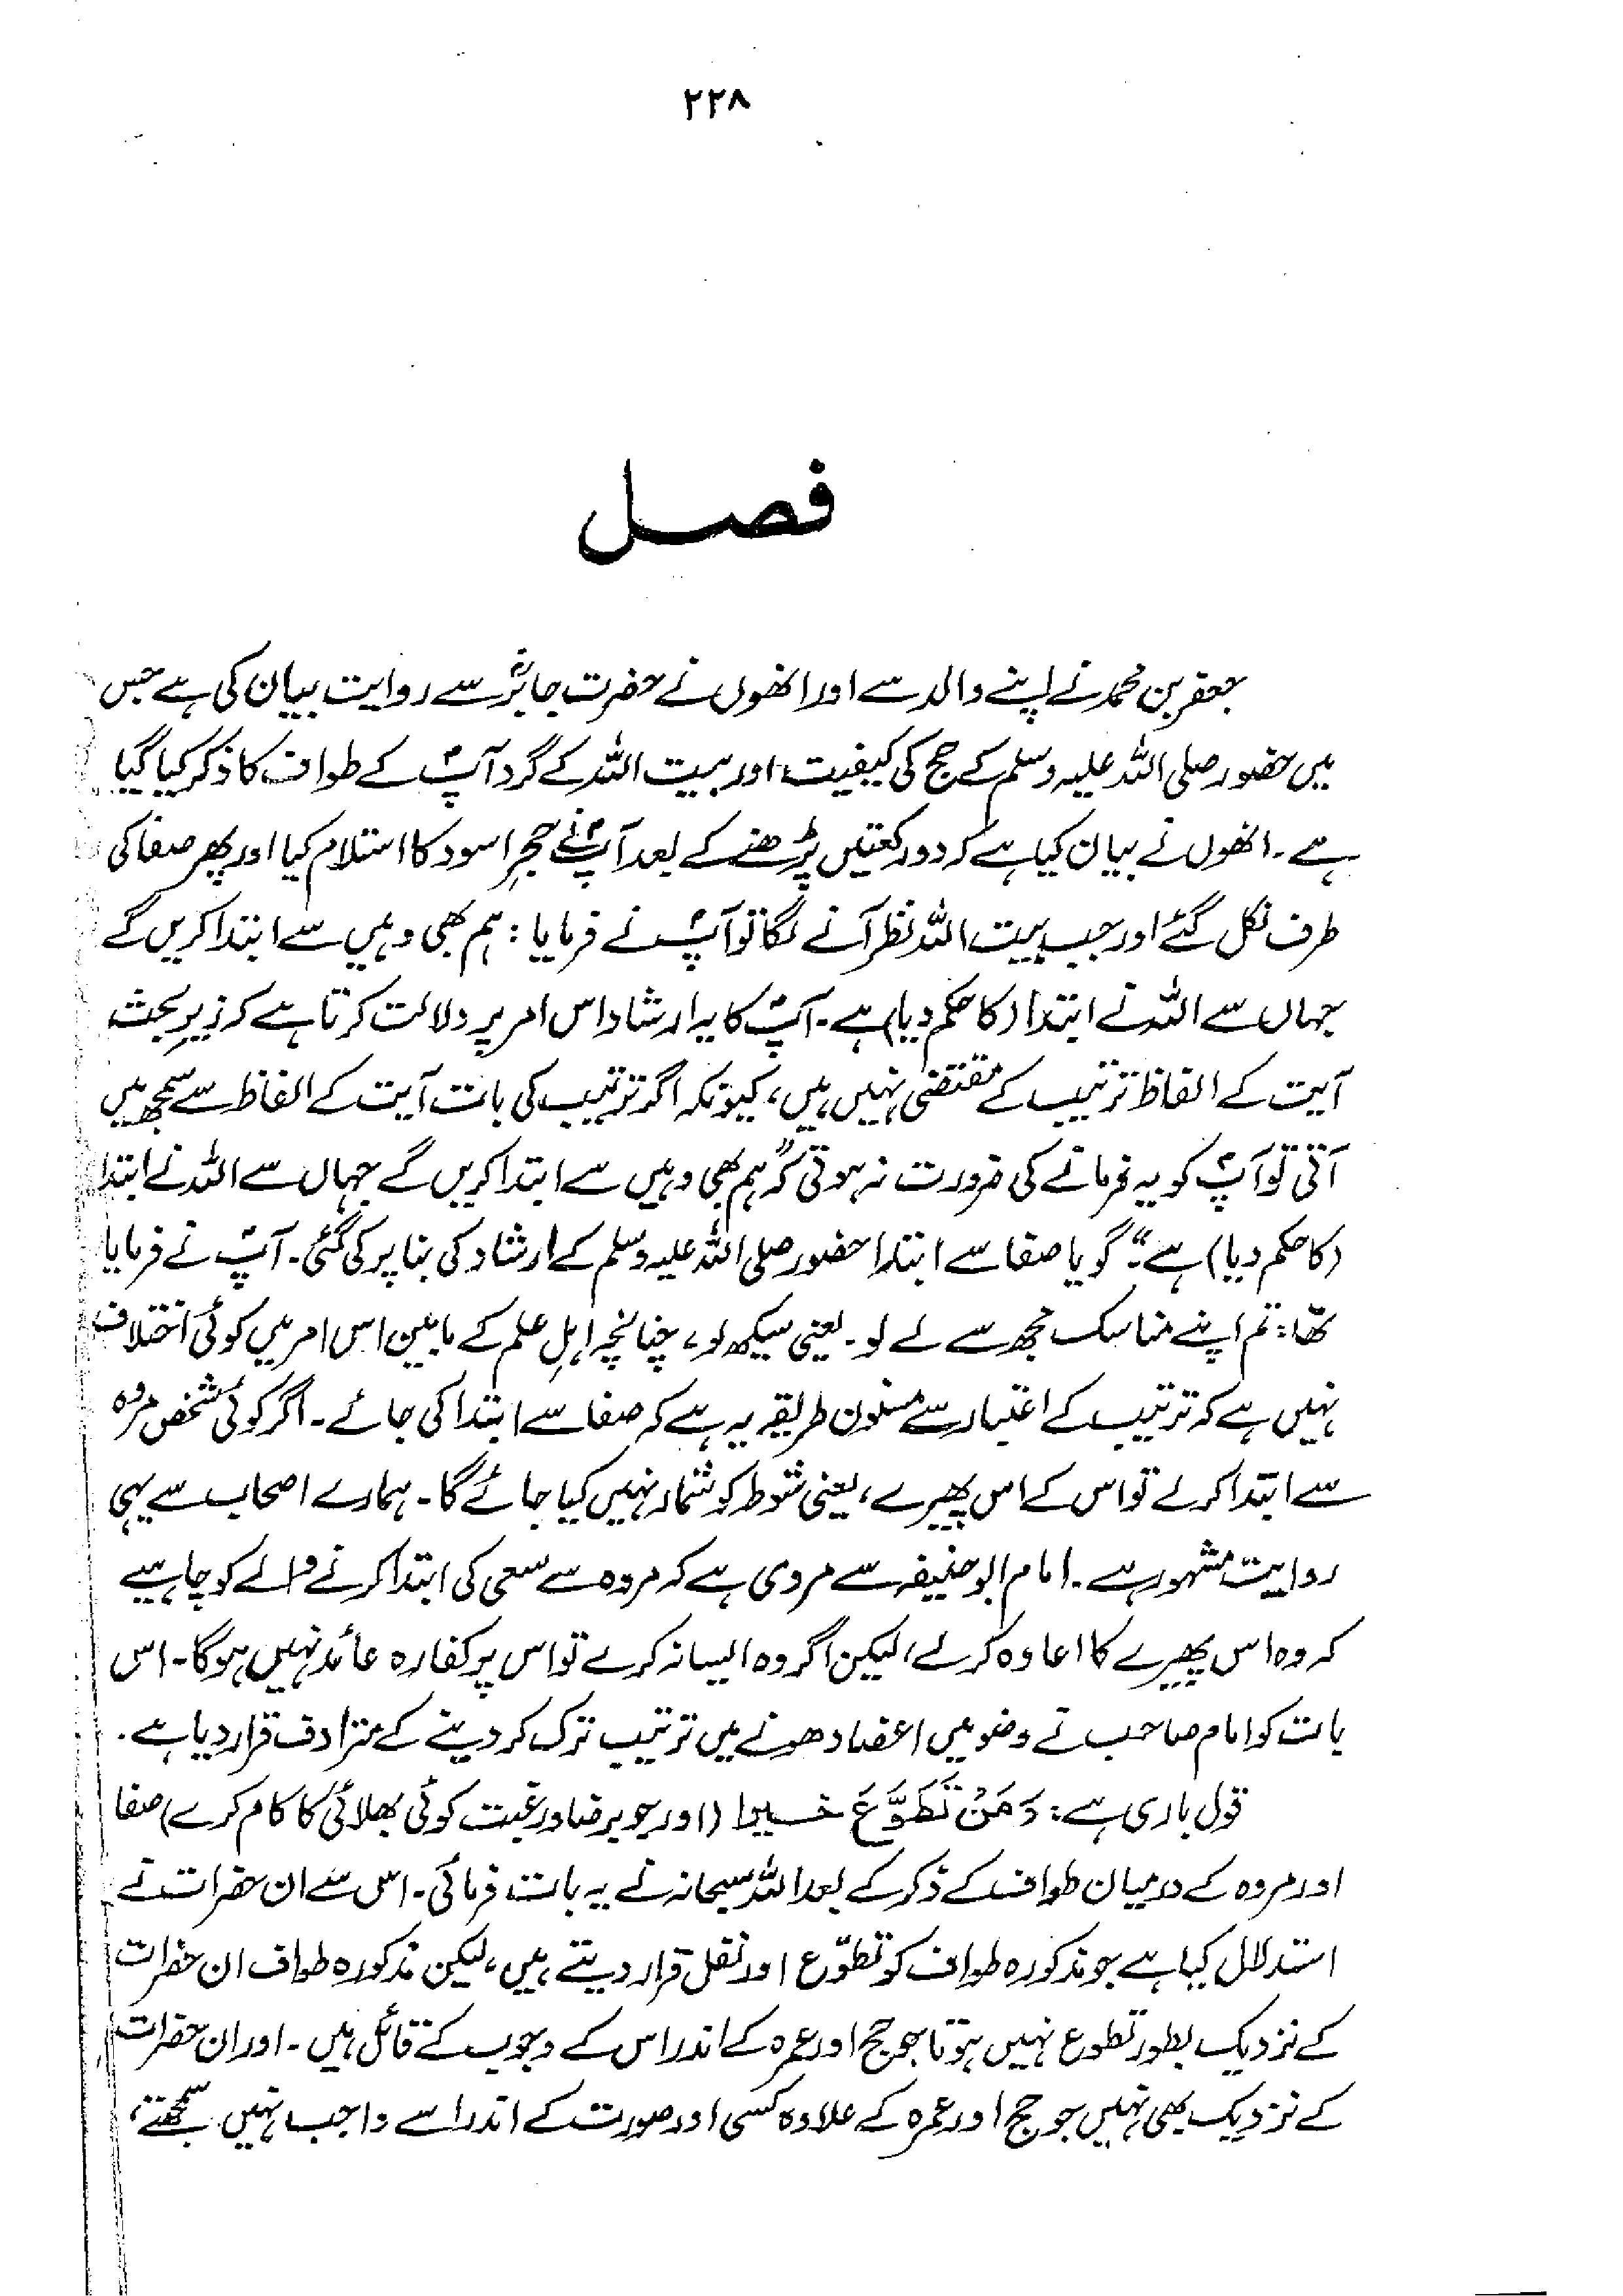 ۲۲۸
فصل
جعفر بن محمد نے اپنے والد سے اور انھوں نے حضرت جابرؓ سے روایت بیان کی ہے جس
میں حضور صلی اللہ علیہ وسلم کے حج کی کیفیت، اور بیت اللہ کے گرد آپؐ کے طواف کا ذکر کیا گیا
ہے۔ انھوں نے بیان کیا ہے کہ دو رکعتیں پڑھنے کے بعد آپؐ نے حجرِ اسود کا استلام کیا اور پھر صفا کی
طرف نکل گئے اور جب بیت اللہ نظر آنے لگا تو آپؐ نے فرمایا: ہم بھی وہیں سے ابتدا کریں گے
جہاں سے اللہ نے ابتدا (کا حکم دیا) ہے۔ آپؐ کا یہ ارشاد اس امر پر دلالت کرتا ہے کہ زیرِ بحث
آیت کے الفاظ ترتیب کے مقتضی نہیں ہیں، کیونکہ اگر ترتیب کی بات آیت کے الفاظ سے سمجھ میں
آتی تو آپؐ کو یہ فرمانے کی ضرورت نہ ہوتی کہ "ہم بھی وہیں سے ابتدا کریں گے جہاں سے اللہ نے ابتدا
(کا حکم دیا) ہے"۔ گویا صفا سے ابتدا حضور صلی اللہ علیہ وسلم کے ارشاد کی بنا پر کی گئی۔ آپؐ نے فرمایا
تھا: تم اپنے مناسک مجھ سے لے لو۔ یعنی سیکھ لو، چنانچہ اہلِ علم کے مابین اس امر میں کوئی اختلاف
نہیں ہے کہ ترتیب کے اعتبار سے مسنون طریقہ یہ ہے کہ صفا سے ابتدا کی جائے۔ اگر کوئی شخص مروہ
سے ابتدا کرلے تو اس کے اس پھیرے، یعنی شوط کو شمار نہیں کیا جائے گا۔ ہمارے اصحاب سے یہی
روایت مشہور ہے۔ امام ابوحنیفہ سے مروی ہے کہ مروہ سے سعی کی ابتدا کرنے والے کو چاہیے
کہ وہ اس پھیرے کا اعادہ کرلے، لیکن اگر وہ ایسا نہ کرے تو اس پر کفارہ عائد نہیں ہوگا۔ اس
بات کو امام صاحب نے وضو میں اعضا دھونے میں ترتیب ترک کر دینے کے مترادف قرار دیا ہے۔
قول باری ہے: وَمَنْ تَطَوَّعَ خيرا (اور جو برضا و رغبت کوئی بھلائی کا کام کرے) صفا
اور مروہ کے درمیان طواف کے ذکر کے بعد اللہ سبحانہ نے یہ بات فرمائی۔ اس سے ان حضرات نے
استدلال کیا ہے جو مذکورہ طواف کو تطوّع اور نفل قرار دیتے ہیں، لیکن مذکورہ طواف ان حضرات
کے نزدیک بطور تطوع نہیں ہوتا جو حج اور عمرہ کے اندر اس کے وجوب کے قائل ہیں۔ اور ان حضرات
کے نزدیک بھی نہیں جو حج اور عمرہ کے علاوہ کسی اور صورت کے اندر اسے واجب نہیں سمجھتے،